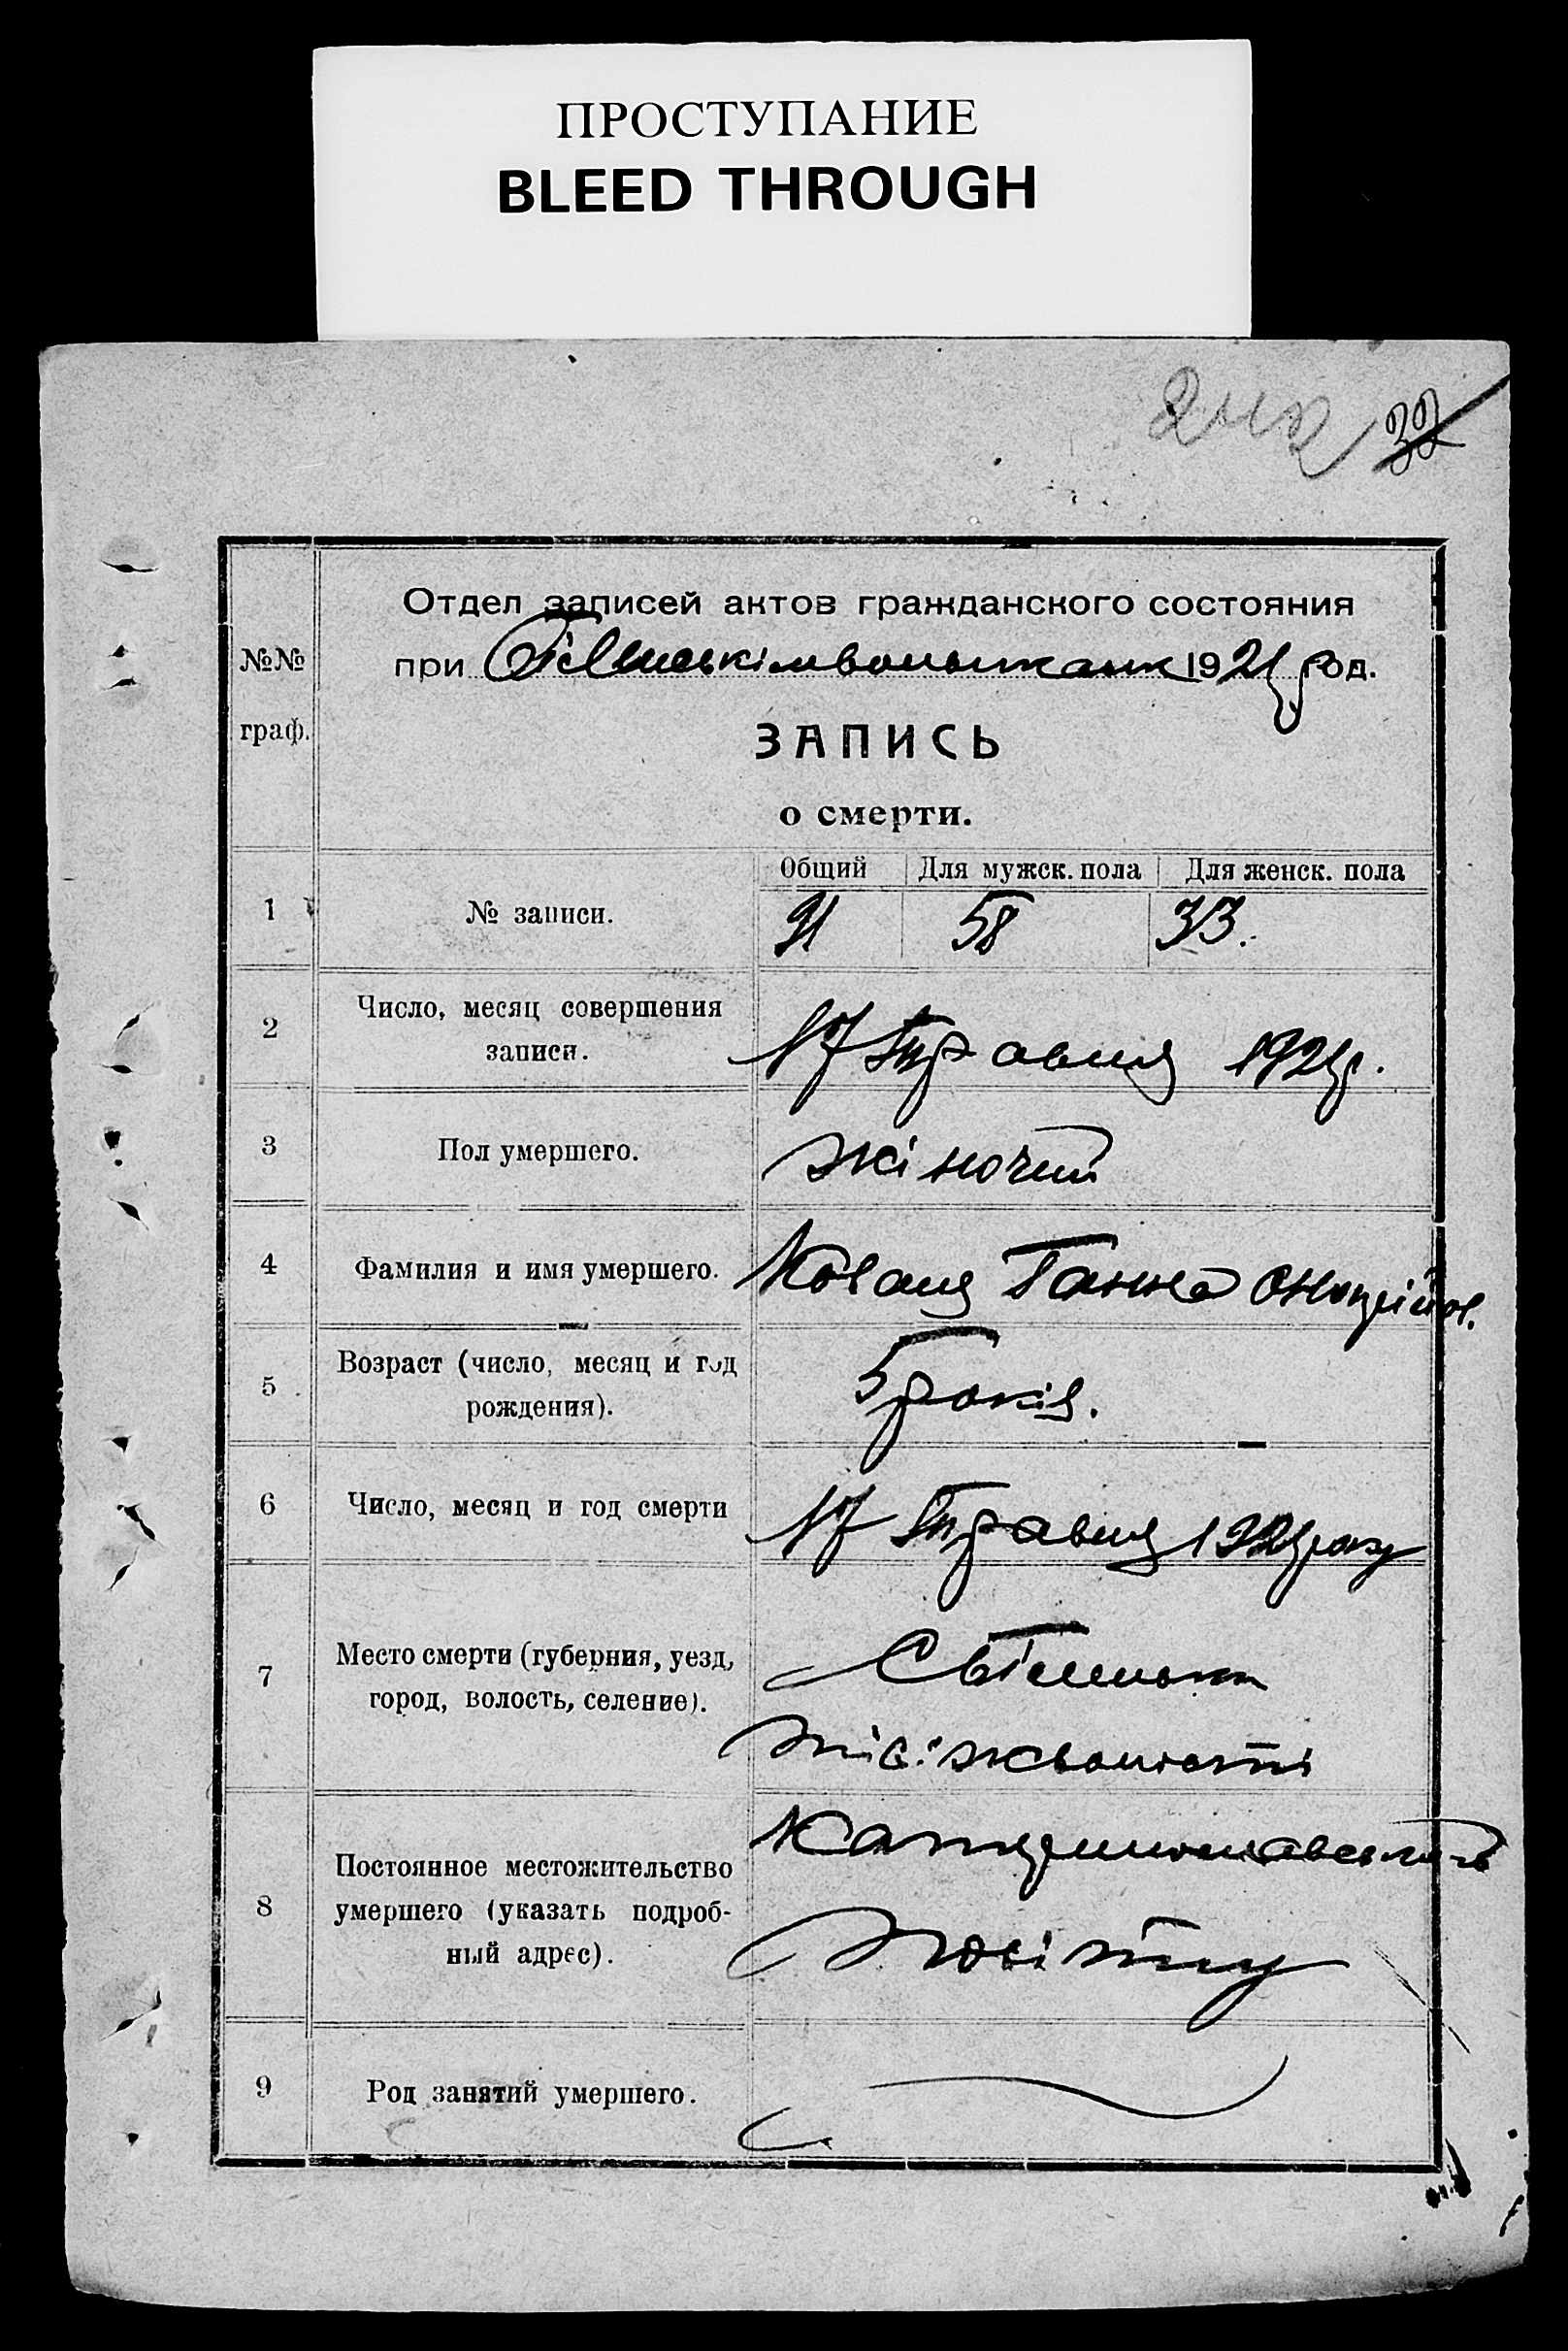 ПРОСТУПАНИЕ
BLEED THROUGH
32
Отдел записей актов гражданского состояния
при 1921 год.
№№
граф.
ЗАПИСЬ
о смерти.
Общий Для мужск. пола Для женск. пола
1 № записи. 91 58 33.
2 Число, месяц совершения
записи. 17 Травня 1921р.
3 Пол умершего. жіночий
4 Фамилия и имя умершего. Ганна
5 Возраст (число, месяц и год
рождения). 5 років.
6 Число, месяц и год смерти 17 Травня 1921 року
7 Место смерти (губерния, уезд,
город, волость, селение).
8 Постоянное местожительство
умершего (указать подроб-
ный адрес). повіту
9 Род занятий умершего.